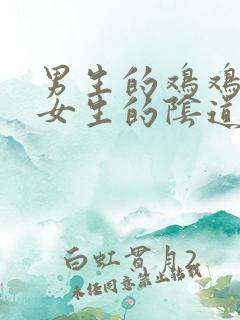 男生的鸡鸡
女生的阴道
白虹贯月2
未经同意禁止转载